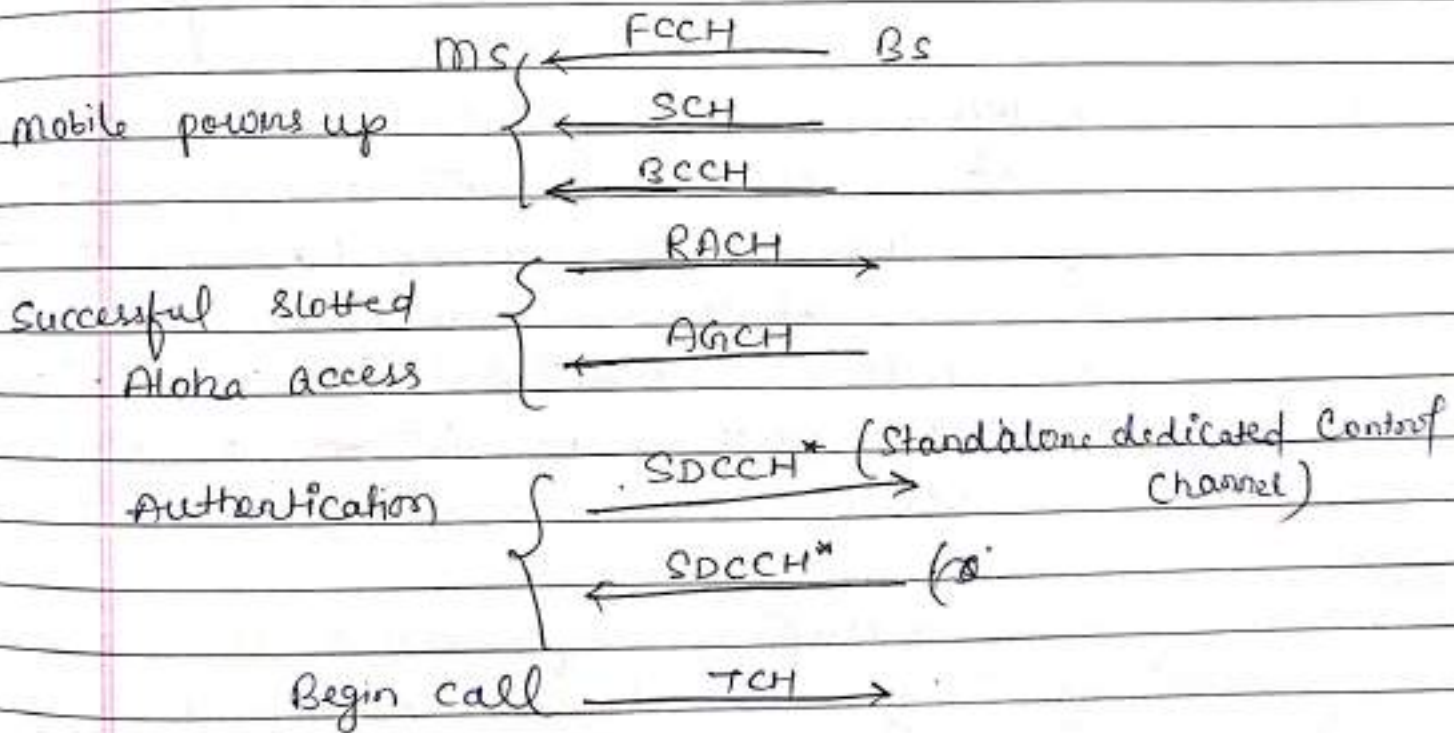 MS FCCH BS
Mobile powers up SCH
BCCH
RACH
Successful Slotted
Aloha access AGCH
Authentication SDCCH* (Standalone dedicated Control
Channel)
SDCCH* (
Begin call TCH